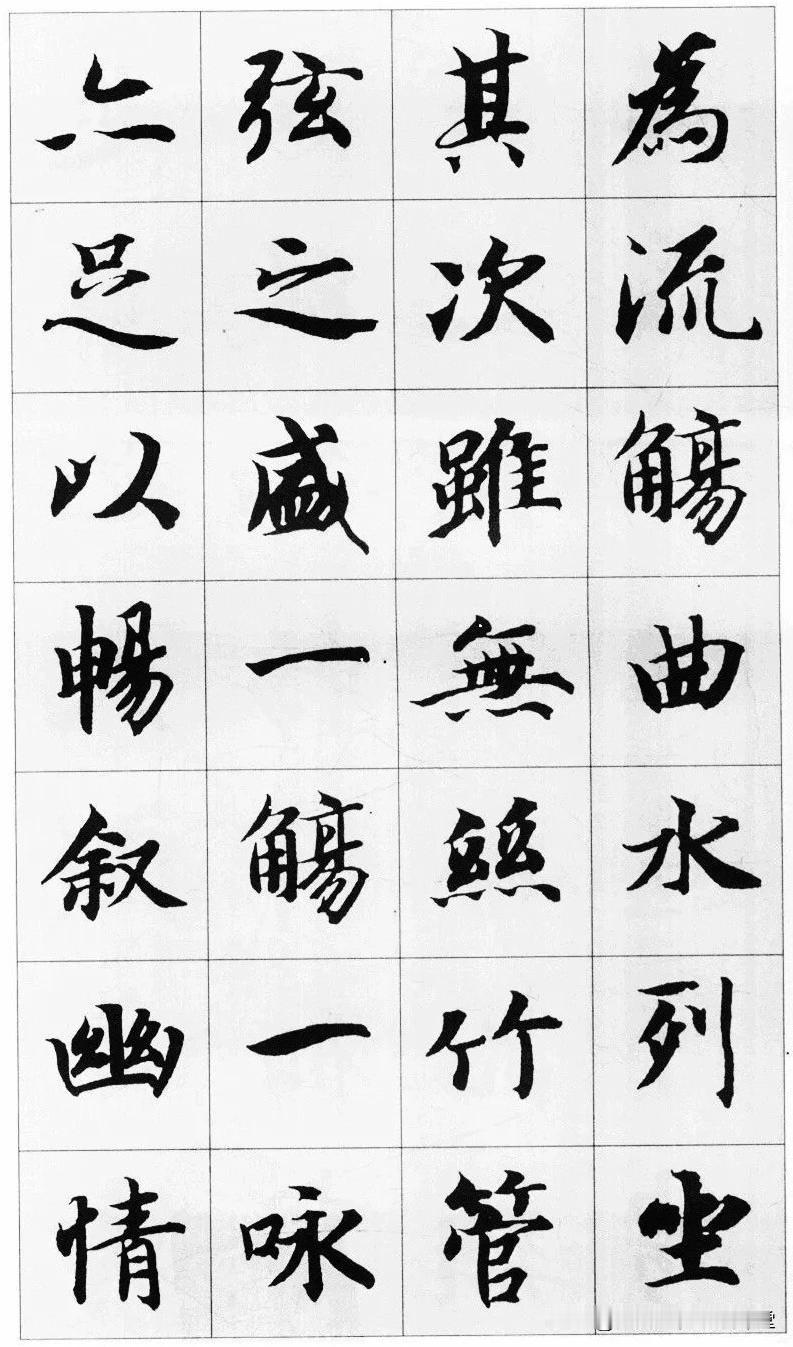 為流觴曲水列坐
其次雖無絲竹管
弦之盛一觴一咏
亦足以暢叙幽情